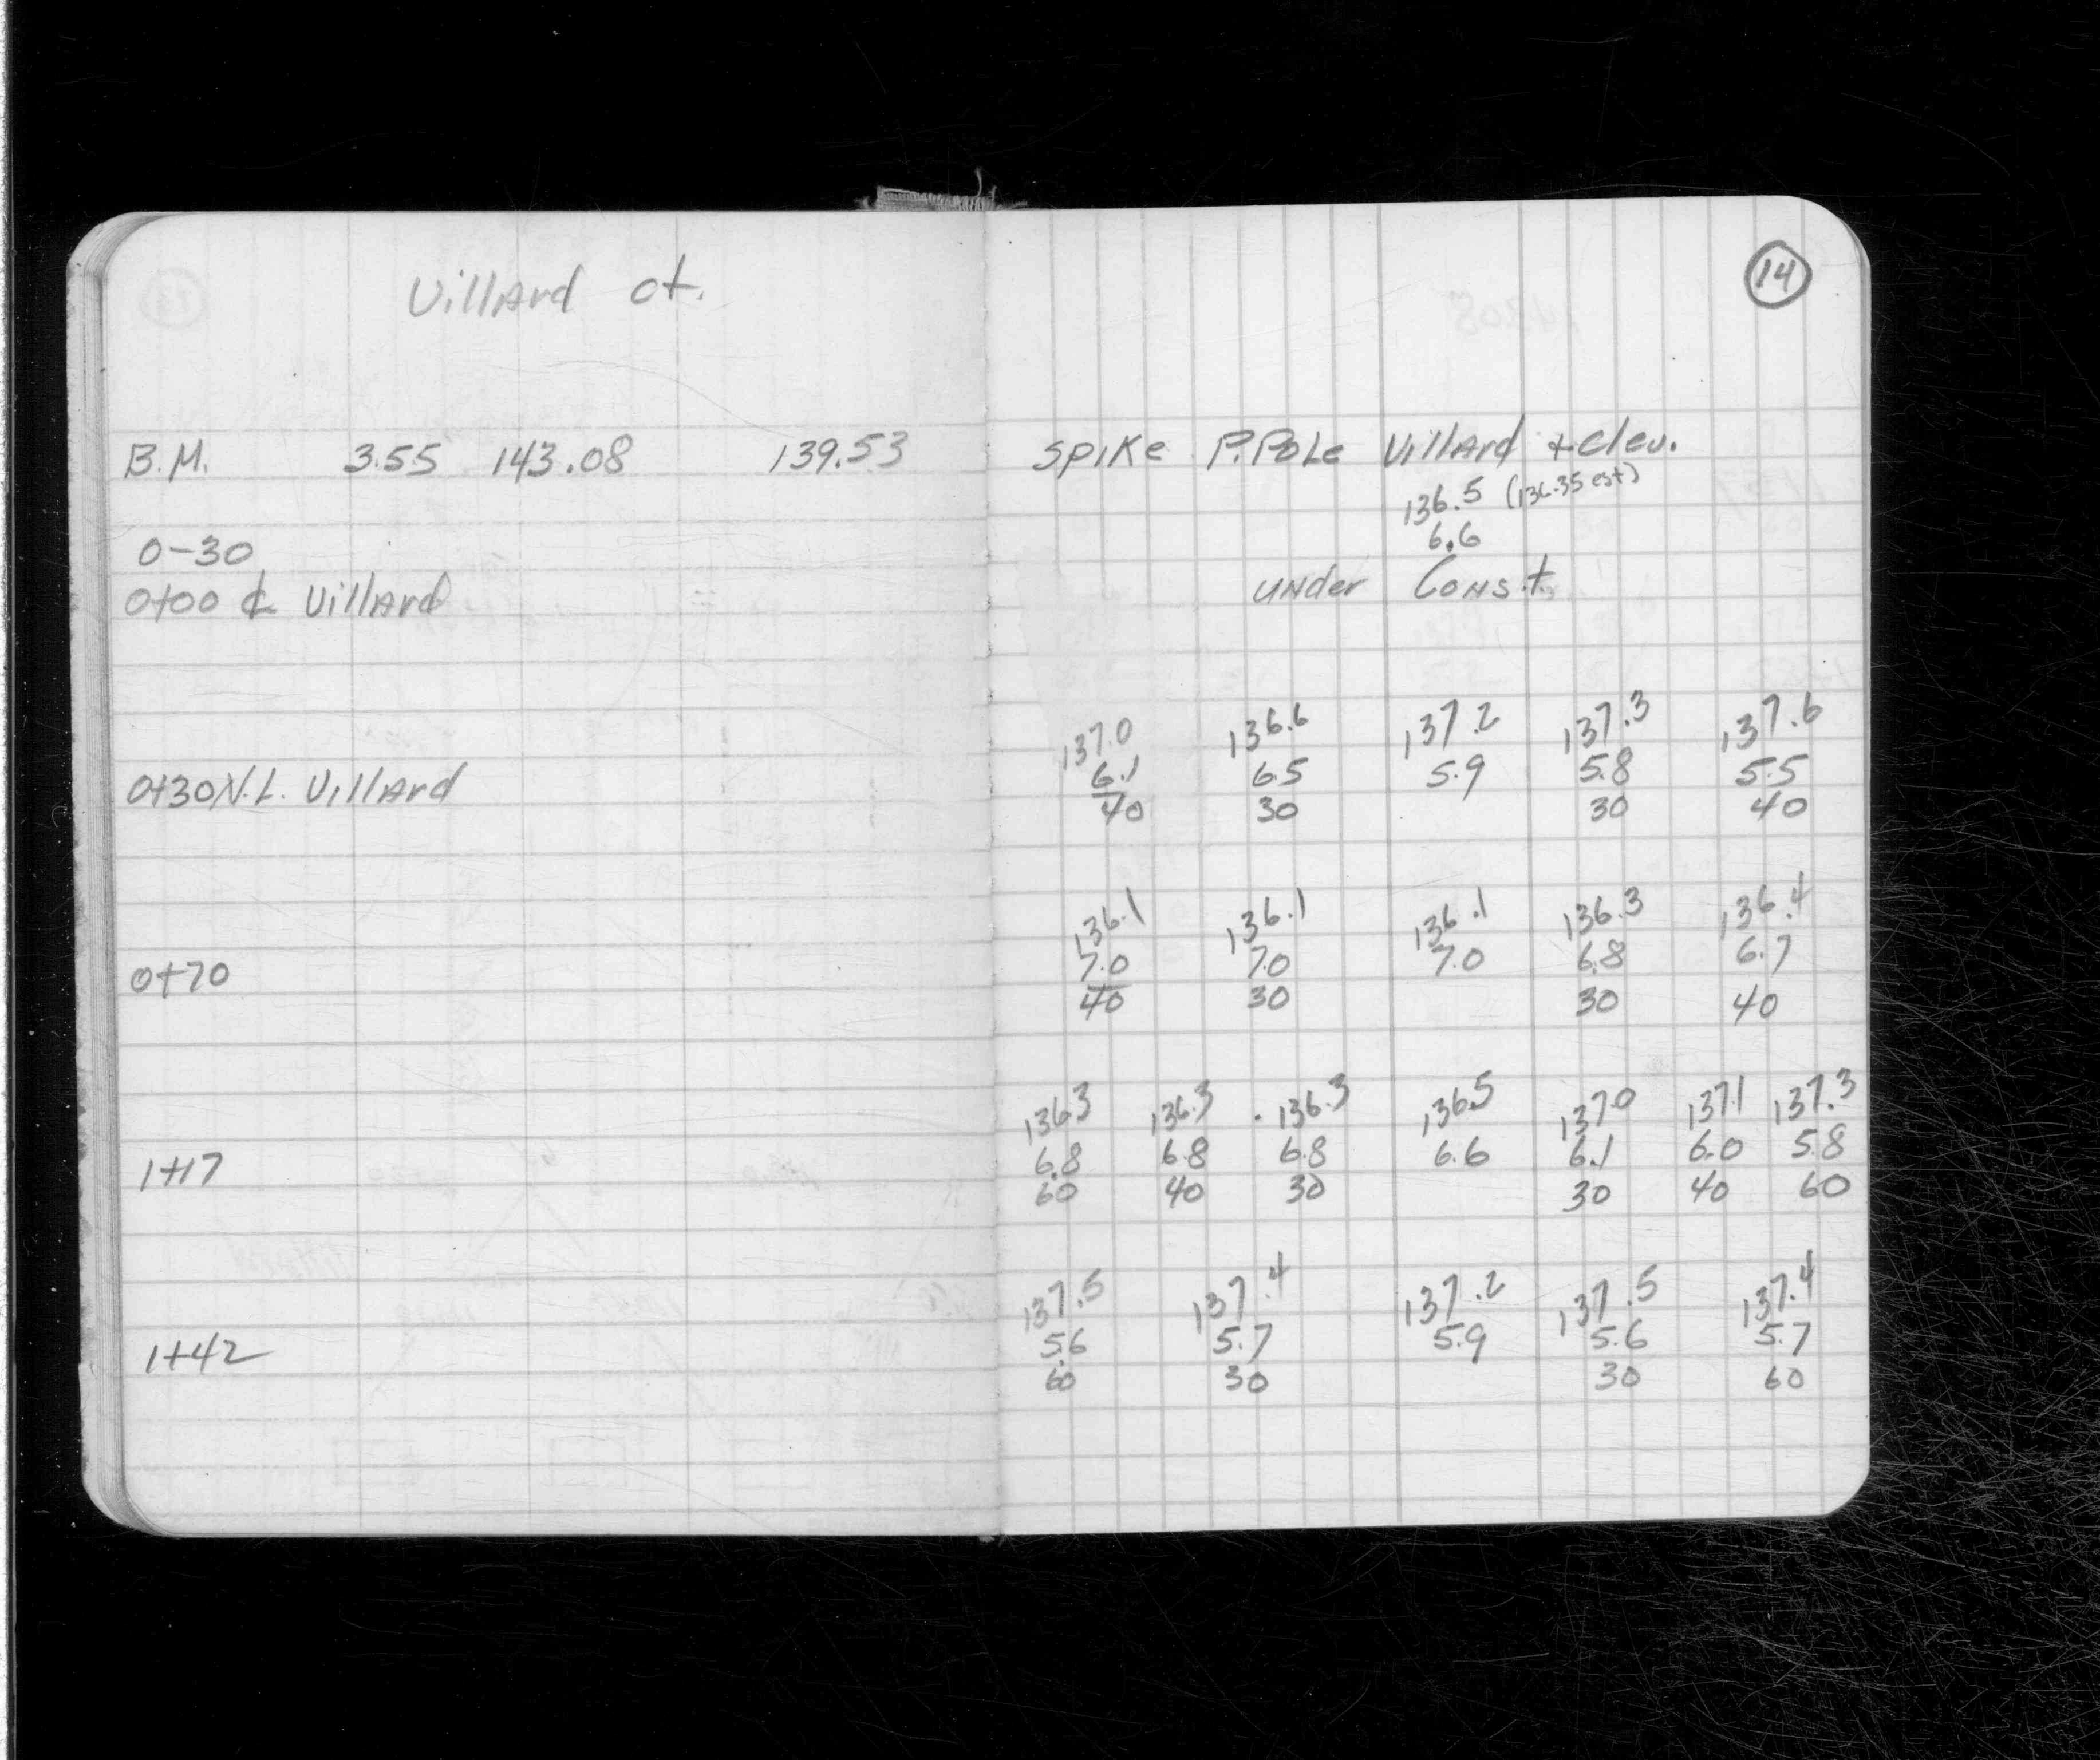 Villard St.
14
B.M. 3.55 143.08 139.53 Spike P.Pole Villard + Clev.
136.5 (136.35 est)
0-30 6.6
0+00 ℄ Villard under Const.
137.0 136.6 137.2 137.3 137.6
0+30 N.L. Villard 6.1 6.5 5.9 5.8 5.5
40 30 30 40
136.1 136.1 136.1 136.3 136.4
0+70 7.0 7.0 7.0 6.8 6.7
40 30 30 40
136.3 136.3 136.3 136.5 137.0 137.1 137.3
1+17 6.8 6.8 6.8 6.6 6.1 6.0 5.8
60 40 30 30 40 60
137.5 137.4 137.2 137.5 137.4
1+42 5.6 5.7 5.9 5.6 5.7
60 30 30 60